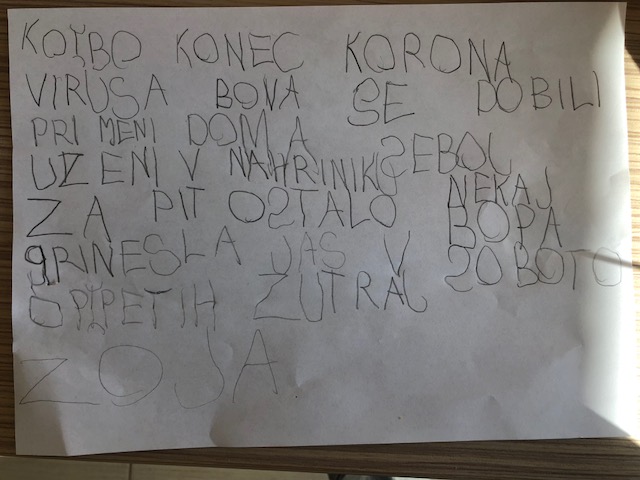 KOJBO KONEC KORONA
VIRUSA BOVA SE DOBILI
PRI MENI DOMA SEBOJ
UZENI V NAHRINIKU NEKAJ
ZA PIT OSTALO BOPA
PRINESLA JAS V SOBOTO
OPIPETIH ZUTRAJ
ZOJA